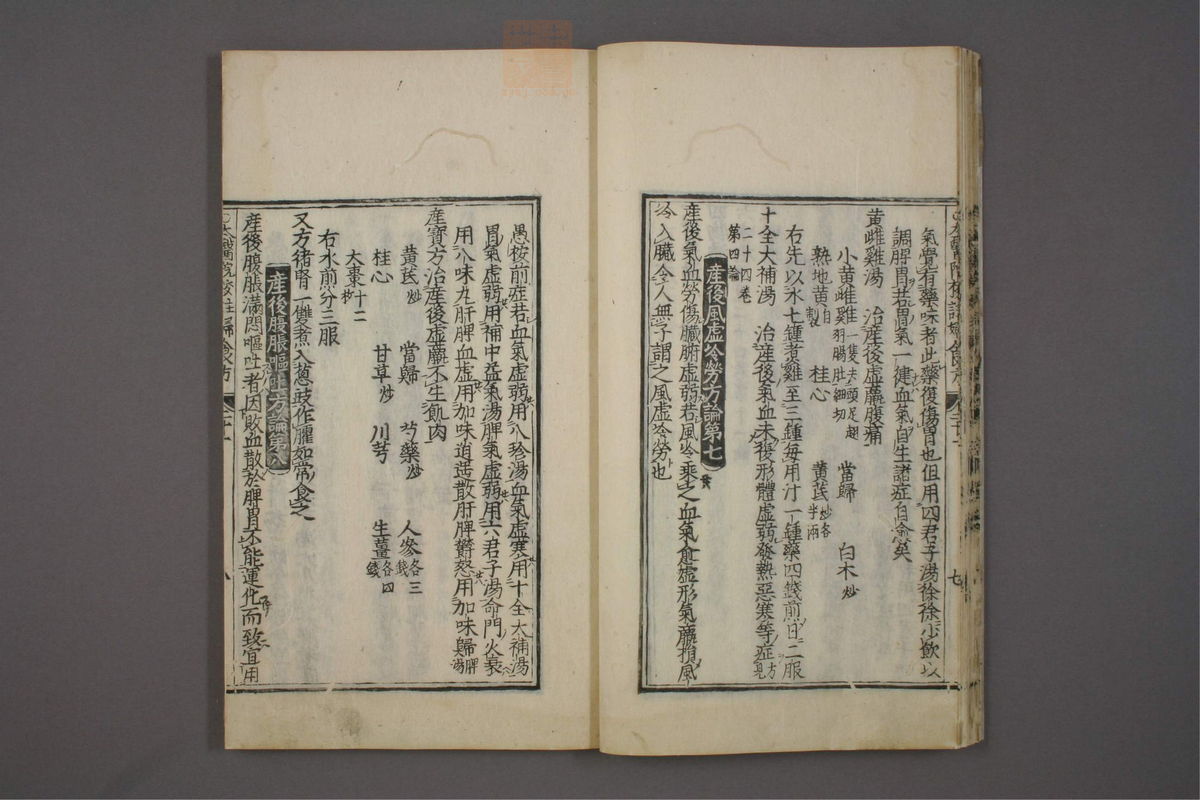 氣覺有藥味者此藥復傷胃也但用四君子湯徐徐少飲以
調脾胃若胃氣一健血氣自生諸症自愈矣
黃雌雞湯 治產後虛羸腹痛
小黃雌雞一隻去頭足翅羽腸肚細切 當歸 白木炒
熟地黃自製 桂心 黃芪炒各半兩
右先以水七鍾煮雞至三鍾每用汁一鍾藥四錢煎日二服
十全大補湯 治產後氣血未復形體虛弱發熱惡寒等症方見
二十四卷第四論
產後風虛冷勞方論第七
產後氣血勞傷臟腑虛弱若風冷乘之血氣愈虛形氣羸損風
冷入臟令人無子謂之風虛冷勞也
愚按前症若血氣虛弱用八珍湯血氣虛寒用十全大補湯
胃氣虛弱用補中益氣湯脾氣虛弱用六君子湯命門火衰
用八味丸肝脾血虛用加味逍遥散肝脾鬱怒用加味歸脾湯
產寶方治產後虛羸不生飢肉
黃芪炒 當歸 芍藥炒 人參各三錢
桂心 甘草炒 川芎 生薑各四錢
大棗十二枚
右水煎分三服
又方猪腎一雙煮入蔥豉作臛如常食之
產後腹脹嘔吐方論第八
產後腹脹滿悶嘔吐者因敗血散於脾胃不能運化而致宜用